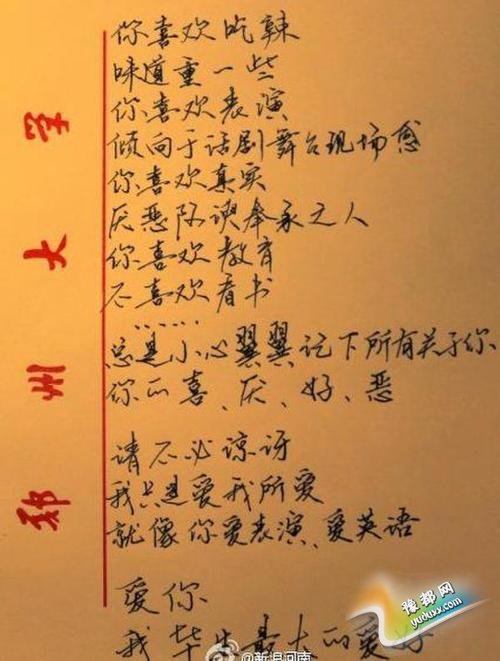 郑州大学
你喜欢吃辣
味道重一些
你喜欢表演
倾向于话剧舞台现场感
你喜欢真实
厌恶阿谀奉承之人
你喜欢教育
不喜欢看书
……
总是小心翼翼记下所有关于你、
你的喜、厌、好、恶
请不必谅讶
我只是爱我所爱
就像你爱表演、爱英语
爱你
我毕生最大的爱好
@新浪河南
豫都网
yuduxx.com